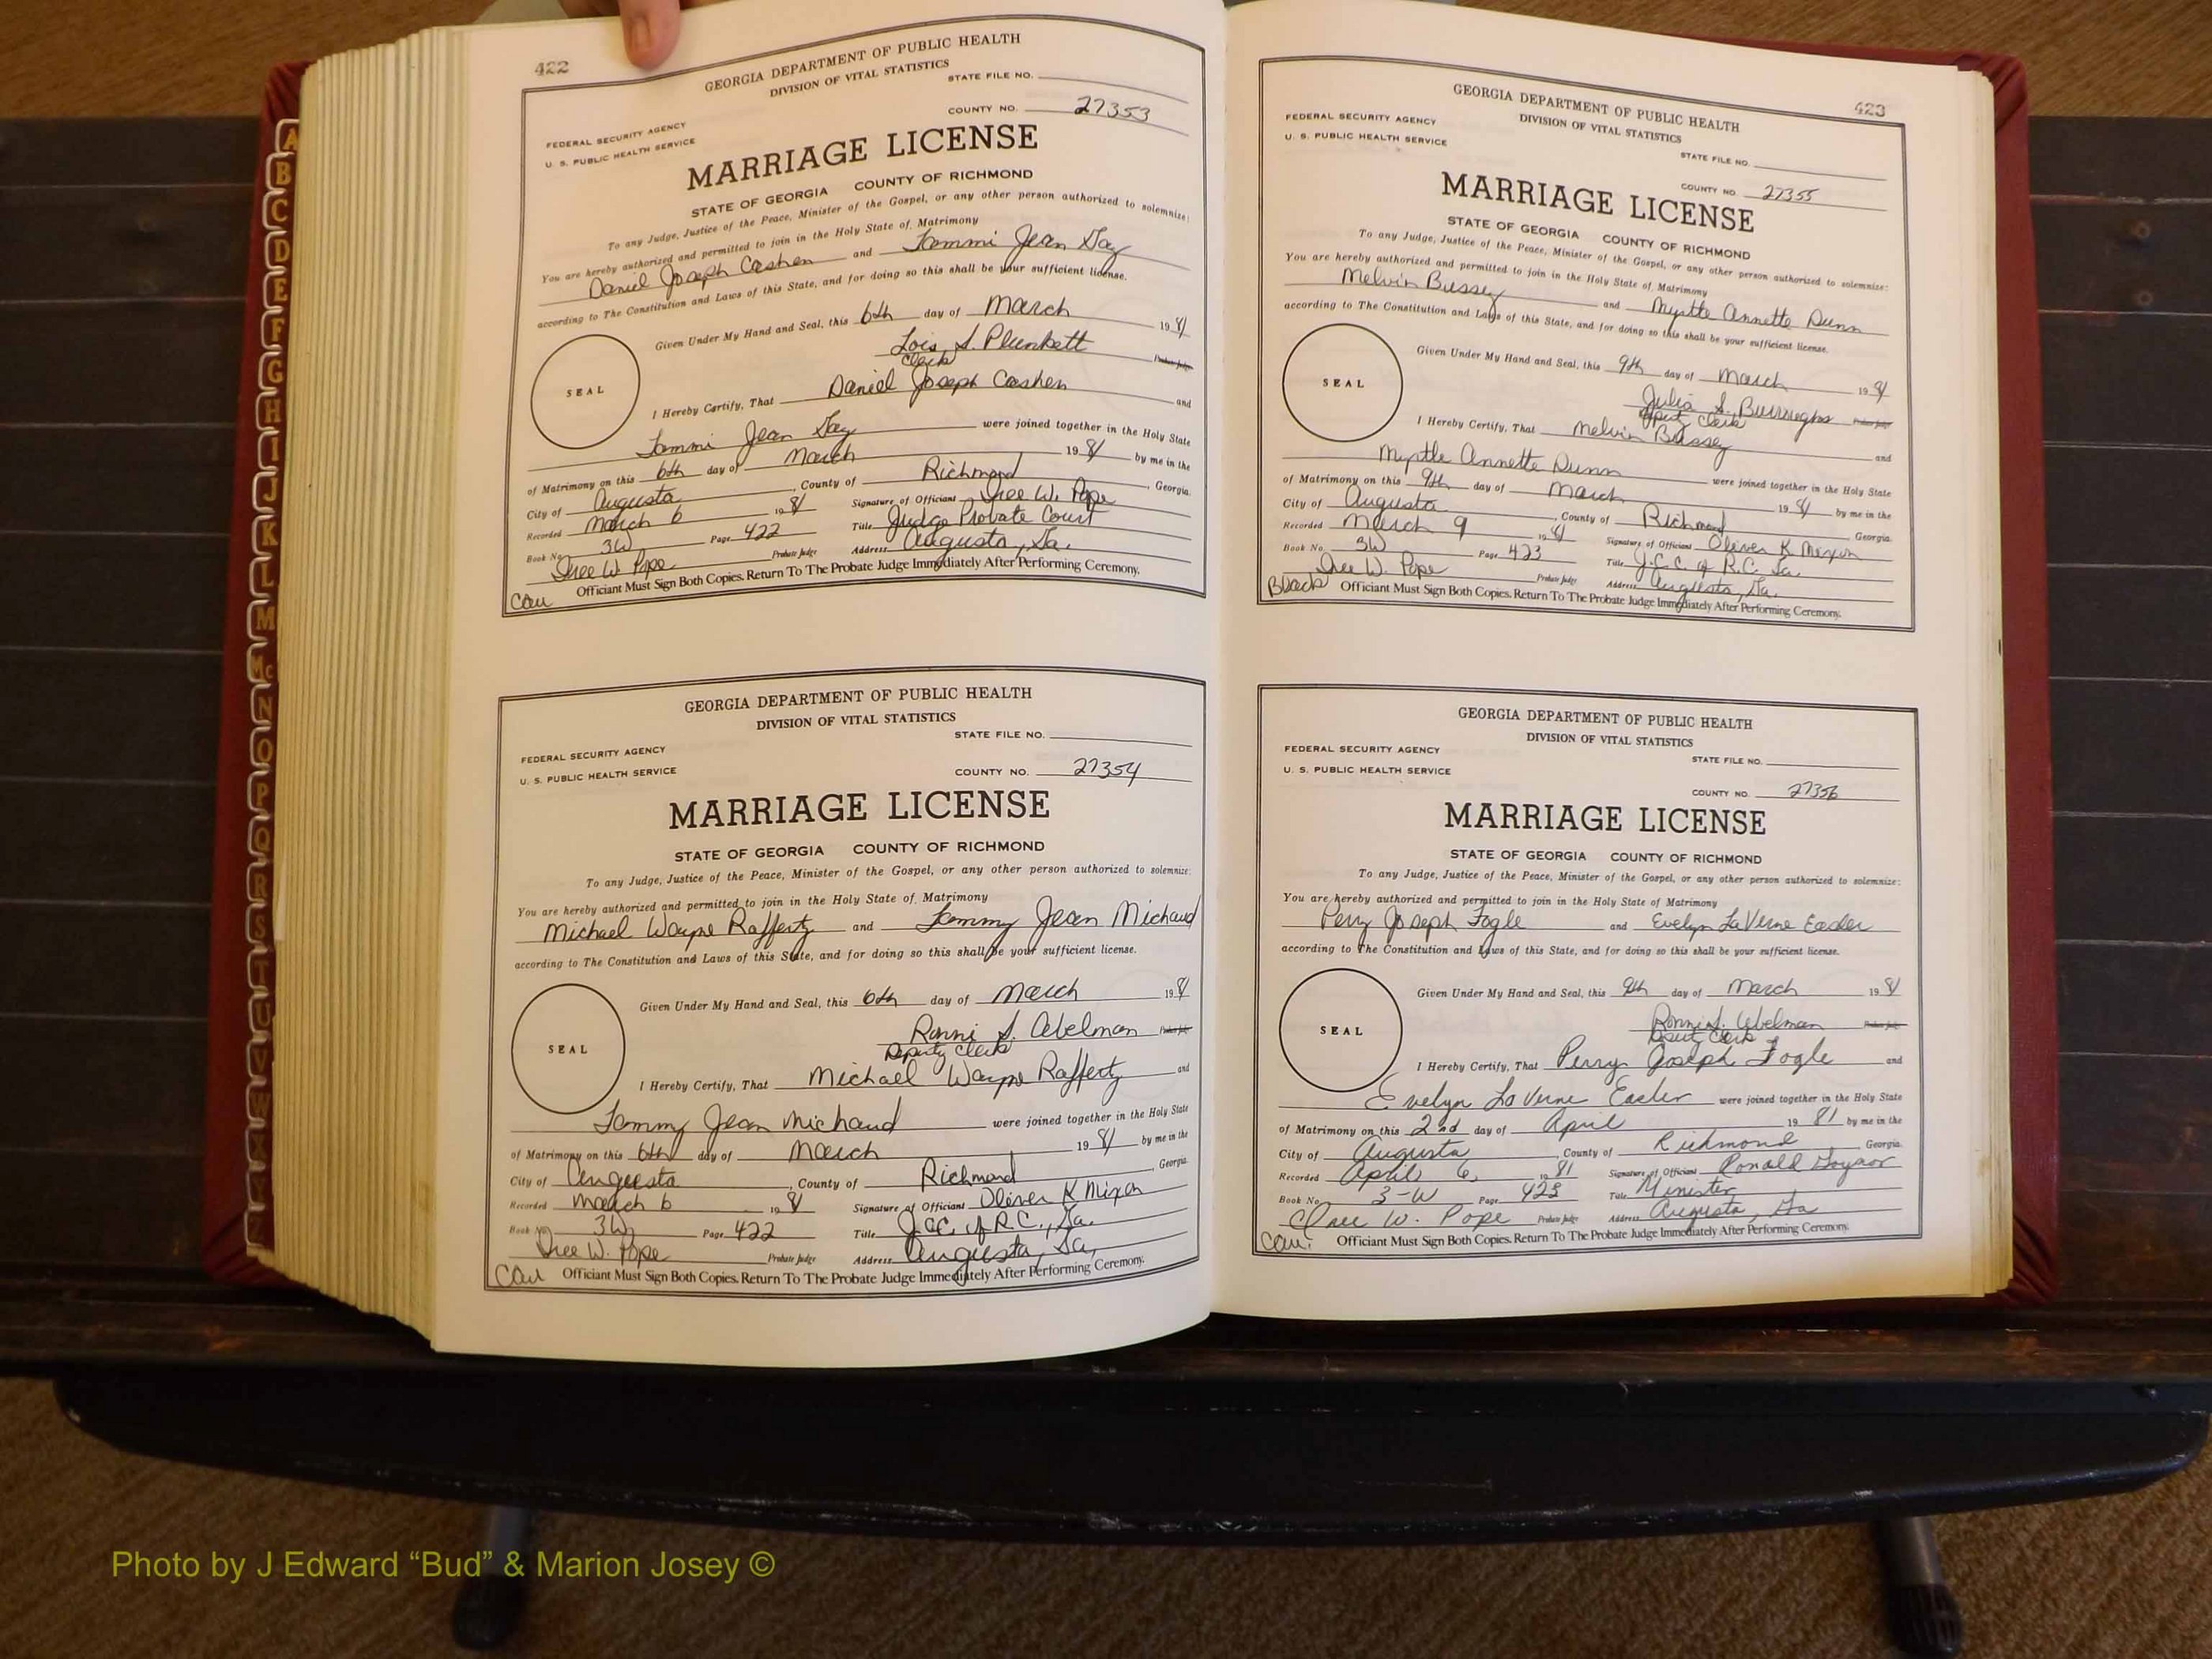 A
B
C
D
E
F
G
H
I
J
K
L
M
Mc
N
O
P
Q
R
S
T
U
V
W
422
GEORGIA DEPARTMENT OF PUBLIC HEALTH
DIVISION OF VITAL STATISTICS
STATE FILE NO.
COUNTY NO. 27353
FEDERAL SECURITY AGENCY
U. S. PUBLIC HEALTH SERVICE
MARRIAGE LICENSE
STATE OF GEORGIA COUNTY OF RICHMOND
To any Judge, Justice of the Peace, Minister of the Gospel, or any other person authorized to solemnize:
You are hereby authorized and permitted to join in the Holy State of Matrimony
Daniel Joseph Cashen and Tammi Jean Day
according to The Constitution and Laws of this State, and for doing so this shall be your sufficient license.
Given Under My Hand and Seal, this 6th day of March 1981
Lois S. Plunkett
Clerk Probate Judge
SEAL
I Hereby Certify, That Daniel Joseph Cashen and
Tammi Jean Day were joined together in the Holy State
of Matrimony on this 6th day of March 1981 by me in the
City of Augusta, County of Richmond, Georgia.
Recorded March 6 1981 Signature of Officiant W. Pope
Book No. 3W Page 422 Title Judge Probate Court
W. Pope Probate Judge Address Augusta, Ga.
Cau Officiant Must Sign Both Copies. Return To The Probate Judge Immediately After Performing Ceremony.
GEORGIA DEPARTMENT OF PUBLIC HEALTH
DIVISION OF VITAL STATISTICS
STATE FILE NO.
FEDERAL SECURITY AGENCY
U. S. PUBLIC HEALTH SERVICE
COUNTY NO. 27354
MARRIAGE LICENSE
STATE OF GEORGIA COUNTY OF RICHMOND
To any Judge, Justice of the Peace, Minister of the Gospel, or any other person authorized to solemnize:
You are hereby authorized and permitted to join in the Holy State of Matrimony
Michael Wayne Rafferty and Tammy Jean Michaud
according to The Constitution and Laws of this State, and for doing so this shall be your sufficient license.
Given Under My Hand and Seal, this 6th day of March 1981
Ronni S. Abelman Probate Judge
Deputy Clerk
SEAL
I Hereby Certify, That Michael Wayne Rafferty and
Tammy Jean Michaud were joined together in the Holy State
of Matrimony on this 6th day of March 1981 by me in the
City of Augusta, County of Richmond, Georgia
Recorded March 6 1981 Signature of Officiant Oliver K Mixon
Book No. 3W Page 422 Title J.C.C. of R.C., Ga.
W. Pope Probate Judge Address Augusta, Ga,
Cau Officiant Must Sign Both Copies. Return To The Probate Judge Immediately After Performing Ceremony.
423
GEORGIA DEPARTMENT OF PUBLIC HEALTH
DIVISION OF VITAL STATISTICS
FEDERAL SECURITY AGENCY
U. S. PUBLIC HEALTH SERVICE
STATE FILE NO.
COUNTY NO. 27355
MARRIAGE LICENSE
STATE OF GEORGIA COUNTY OF RICHMOND
To any Judge, Justice of the Peace, Minister of the Gospel, or any other person authorized to solemnize:
You are hereby authorized and permitted to join in the Holy State of Matrimony
Melvin Bussey and Myrtle Annette Dunn
according to The Constitution and Laws of this State, and for doing so this shall be your sufficient license.
Given Under My Hand and Seal, this 9th day of March 1981
Julia S. Burroughs Probate Judge
Deputy Clerk
SEAL
I Hereby Certify, That Melvin Bussey and
Myrtle Annette Dunn were joined together in the Holy State
of Matrimony on this 9th day of March 1981 by me in the
City of Augusta, County of Richmond Georgia.
Recorded March 9 1981 Signature of Officiant Oliver K Mixon
Book No. 3W Page 423 Title J.C.C. of R.C. Ga.
W. Pope Probate Judge Address Augusta, Ga.
Black Officiant Must Sign Both Copies. Return To The Probate Judge Immediately After Performing Ceremony.
GEORGIA DEPARTMENT OF PUBLIC HEALTH
DIVISION OF VITAL STATISTICS
FEDERAL SECURITY AGENCY
U. S. PUBLIC HEALTH SERVICE
STATE FILE NO.
COUNTY NO. 27356
MARRIAGE LICENSE
STATE OF GEORGIA COUNTY OF RICHMOND
To any Judge, Justice of the Peace, Minister of the Gospel, or any other person authorized to solemnize:
You are hereby authorized and permitted to join in the Holy State of Matrimony
Perry Joseph Fogle and Evelyn LaVerne Easler
according to The Constitution and Laws of this State, and for doing so this shall be your sufficient license.
Given Under My Hand and Seal, this 9th day of March 1981
Ronni S. Abelman Probate Judge
Deputy Clerk
SEAL
I Hereby Certify, That Perry Joseph Fogle and
Evelyn LaVerne Easler were joined together in the Holy State
of Matrimony on this 2nd day of April 1981 by me in the
City of Augusta, County of Richmond Georgia.
Recorded April 6, 1981 Signature of Officiant Ronald
Book No. 3-W Page 423 Title Minister
W. Pope Probate Judge Address Augusta, Ga
Cau. Officiant Must Sign Both Copies. Return To The Probate Judge Immediately After Performing Ceremony.
Photo by J Edward “Bud” & Marion Josey ©